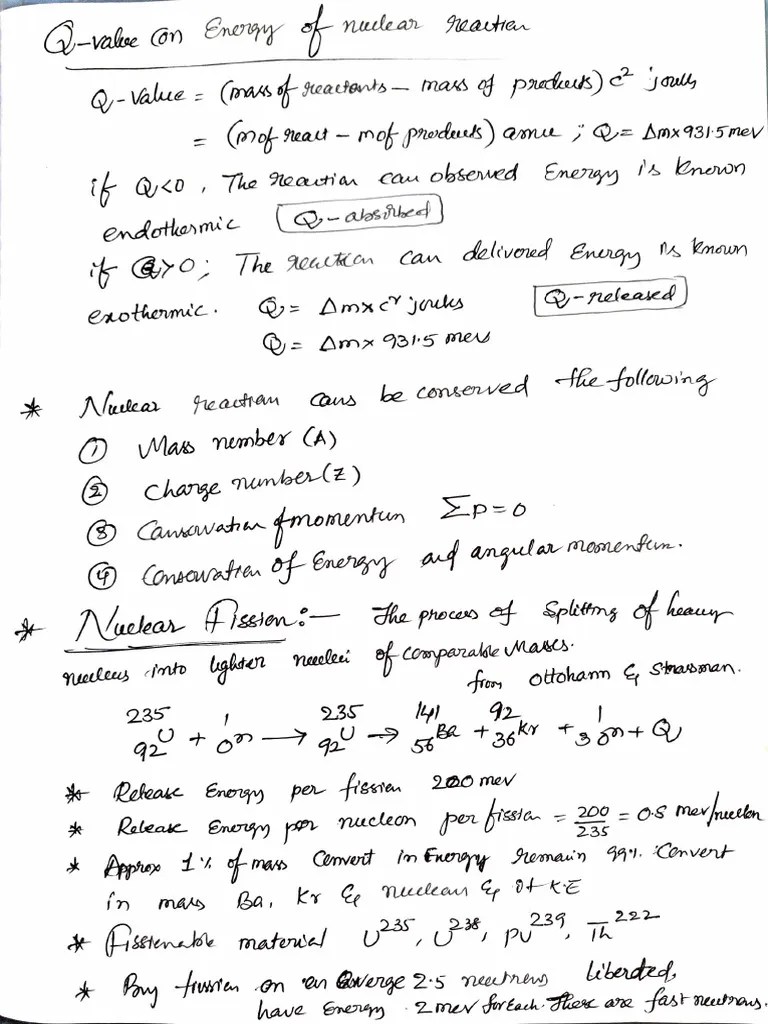 Q-value (on Energy of nuclear reaction
Q-Value = (mass of reactants – mass of products) c² joules
= (m of react – m of products) amu ; Q = Δm x 931.5 mev
if Q<0 , The reaction can observed Energy is known
endothermic Q-absorbed
if Q>0 ; The reaction can delivered Energy is known
exothermic. Q = Δm x c² joules Q-released
Q = Δm x 931.5 mev
* Nuclear reaction cans be conserved the following
① Mass number (A)
② Charge number (Z)
③ Conservation of momentum ΣP = 0
④ Conservation of Energy and angular momentum.
* Nuclear Fission :– The process of splitting of heavy
nucleus into lighter nuclei of comparable Masses.
from Ottohann & Strasman.
²³⁵₉₂U + ¹₀n → ²³⁵₉₂U → ¹⁴¹₅₆Ba + ⁹²₃₆Kr + 3 ¹₀n + Q
* Release Energy per fission 200 mev
* Release Energy per nucleon per fission = 200/235 = 0.8 mev/nucleon
* Approx 1% of mass Convert in Energy remain 99% Convert
in mass Ba, Kr & nuclean & of K.E
* Fissionable material U²³⁵, U²³⁸, Pu²³⁹, Th²²²
* Buy fission on an Average 2.5 neutrons liberated,
have Energy 2 mev for Each. These are fast neutrons.